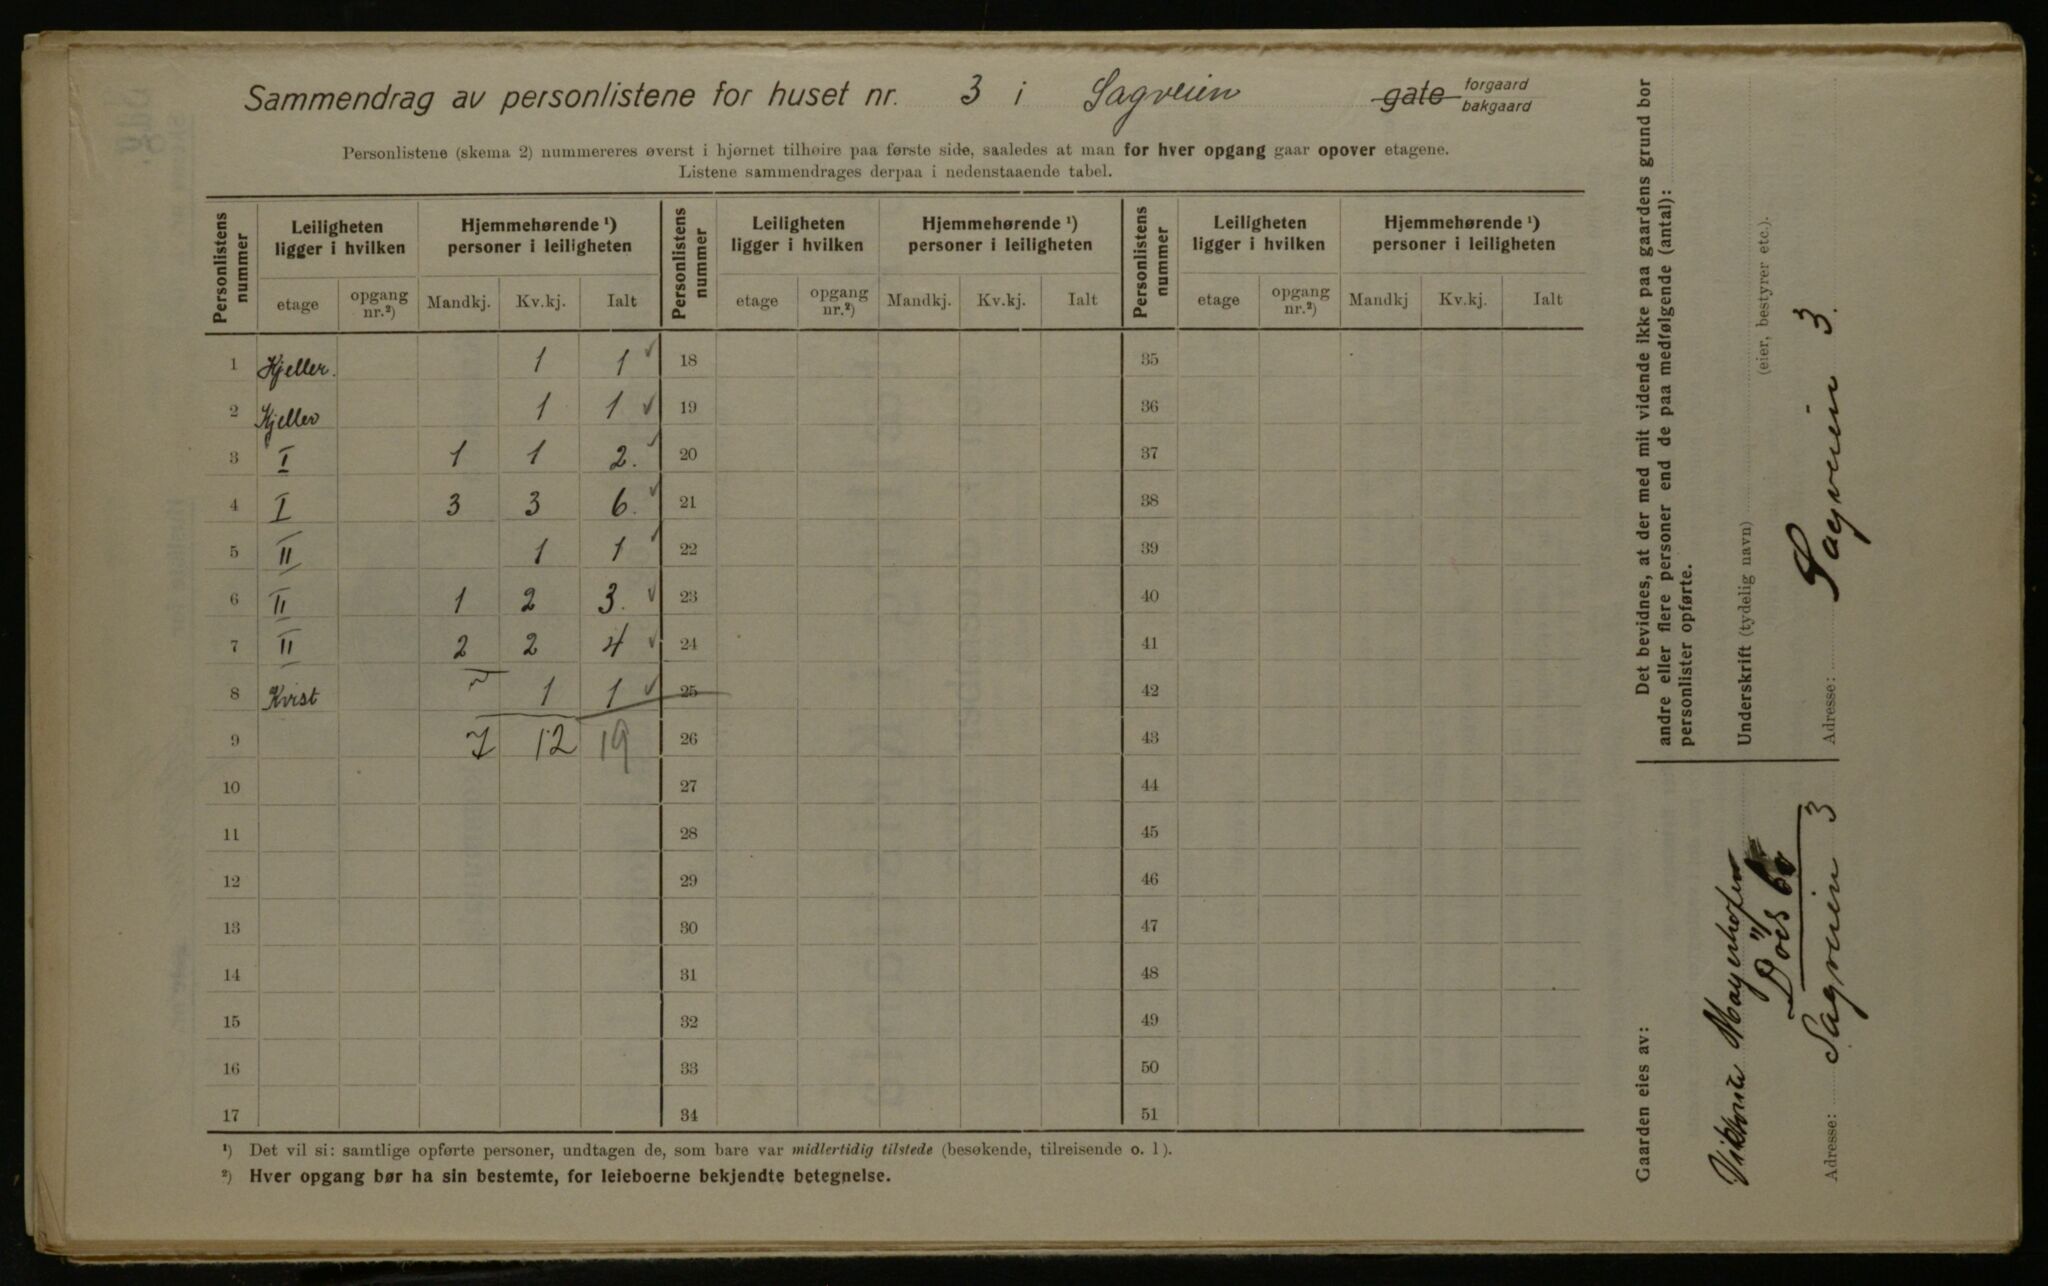 Sammendrag av personlistene for huset nr. 3 i Sagveien gate forgaard bakgaard
Personlistene (skema 2) nummereres øverst i hjørnet tilhøire paa første side, saaledes at man for hver opgang gaar opover etagene.
Listene sammendrages derpaa i nedenstaaende tabel.
Personlistens nummer Leiligheten ligger i hvilken Hjemmehørende ¹) personer i leiligheten Personlistens nummer Leiligheten ligger i hvilken Hjemmehørende ¹) personer i leiligheten Personlistens nummer Leiligheten ligger i hvilken Hjemmehørende ¹) personer i leiligheten
etage opgang nr.²) Mandkj. Kv.kj. Ialt etage opgang nr.²) Mandkj. Kv.kj. Ialt etage opgang nr.²) Mandkj Kv.kj. Ialt
1 Kjeller. 1 1 18 35
2 Kjeller 1 1 19 36
3 I 1 1 2. 20 37
4 I 3 3 6. 21 38
5 II 1 1 22 39
6 II 1 2 3. 23 40
7 II 2 2 4 24 41
8 Kvist 1 1 25 42
9 7 12 19 26 43
10 27 44
11 28 45
12 29 46
13 30 47
14 31 48
15 32 49
16 33 50
17 34 51
¹) Det vil si: samtlige opførte personer, undtagen de, som bare var midlertidig tilstede (besøkende, tilreisende o. l).
²) Hver opgang bør ha sin bestemte, for leieboerne bekjendte betegnelse.
Det bevidnes, at der med mit vidende ikke paa gaardens grund bor
andre eller flere personer end de paa medfølgende (antal):
personlister opførte.
Underskrift (tydelig navn) (eier, bestyrer etc.).
Adresse: Sagveien 3.
Gaarden eies av:
Mayerhofen
Adresse: Sagveien 3